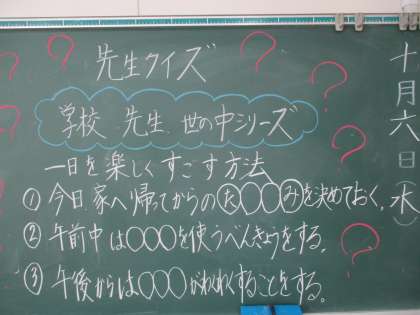 先生クイズ
学校 先生 世の中シリーズ
一日を楽しくすごす方法
① 今日、家へ帰ってからのた○○○みを決めておく。
② 午前中は○○○を使うべんきょうをする。
③ 午後からは○○○がわくわくすることをする。
十月六日(水)